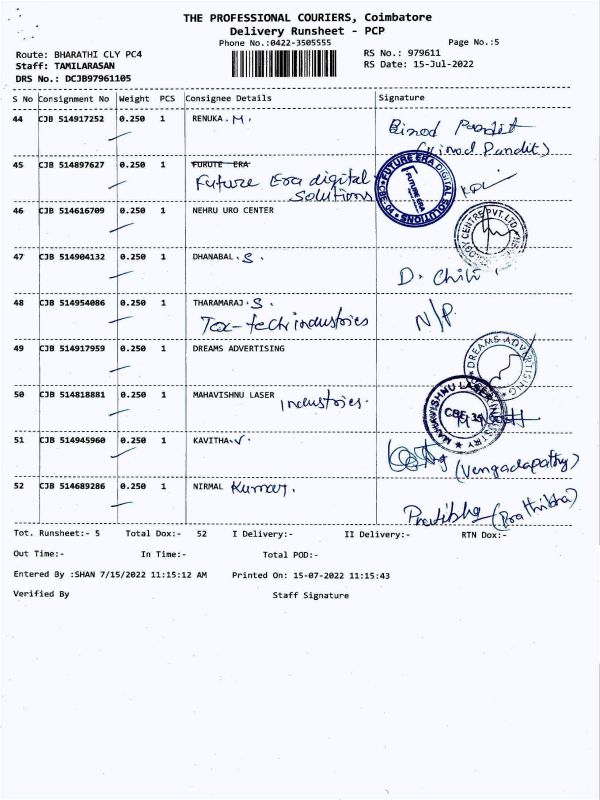 THE PROFESSIONAL COURIERS, Coimbatore
Delivery Runsheet - PCP
Phone No.:0422-3505555 Page No.:5
Route: BHARATHI CLY PC4 RS No.: 979611
Staff: TAMILARASAN RS Date: 15-Jul-2022
DRS No.: DCJB97961105
S No Consignment No Weight PCS Consignee Details Signature
44 CJB 514917252 0.250 1 RENUKA.M. Binod Pandit
(Binod Pandit)
45 CJB 514897627 0.250 1 FURUTE ERA
Future Era digital
Solutions
FUTURE ERA DIGITAL SOLUTIONS
FUTURE ERA
46 CJB 514616709 0.250 1 NEHRU URO CENTER
CENTRE PVT. LTD
47 CJB 514904132 0.250 1 DHANABAL.S. D.
48 CJB 514954086 0.250 1 THARAMARAJ.S. N/P.
Tex-tech industries
49 CJB 514917959 0.250 1 DREAMS ADVERTISING
DREAMS ADVERTISING
50 CJB 514818881 0.250 1 MAHAVISHNU LASER Industries.
MAHAVISHNU LASER INDUSTRY
51 CJB 514945960 0.250 1 KAVITHA.V.
(Vengadapathy)
52 CJB 514689286 0.250 1 NIRMAL Kumar.
Prathibha (Prathibha)
Tot. Runsheet:- 5 Total Dox:- 52 I Delivery:- II Delivery:- RTN Dox:-
Out Time:- In Time:- Total POD:-
Entered By :SHAN 7/15/2022 11:15:12 AM Printed On: 15-07-2022 11:15:43
Verified By Staff Signature